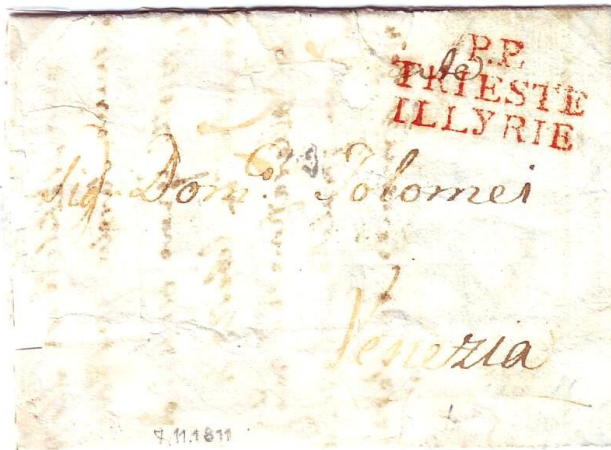 P.P.
TRIESTE
ILLYRIE
Sig. Dom.co Tolomei
Venezia
7.11.1811